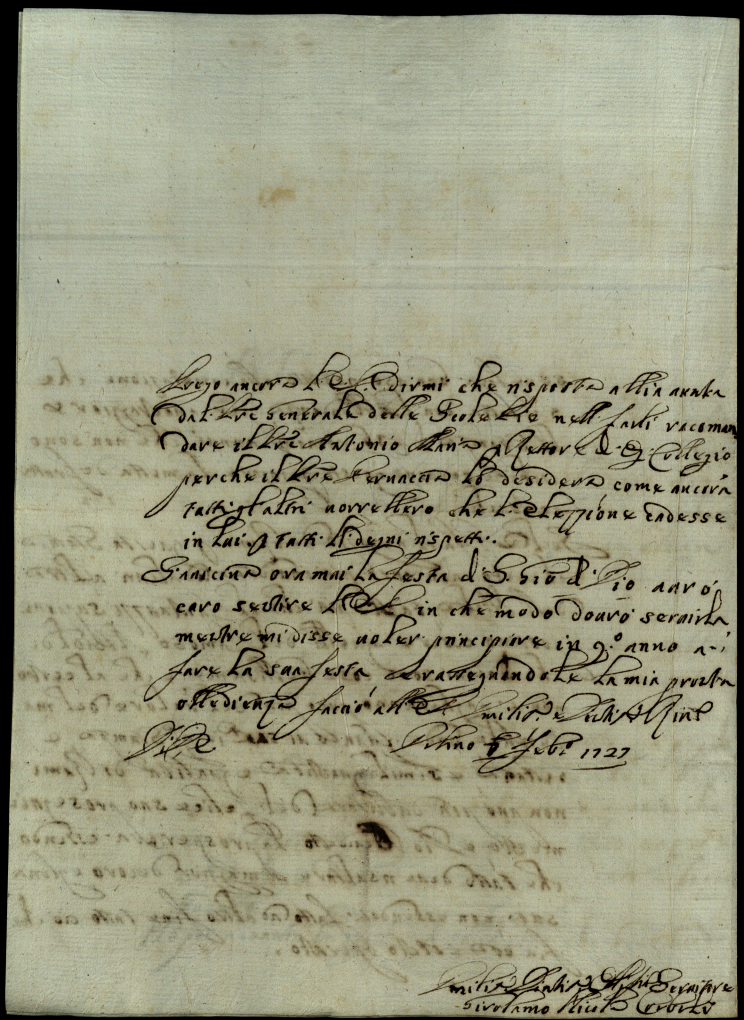 Prego ancora V. E. dirmi che risposta abbia avuta
dal Pre Generale delle Scole Pie nell farli racoman
dare il Pre Antonio p Rettore di q Collegio
perche il Pre lo desidera come ancora
tutti gl altri vorrebbero che l'Elezzione cadesse
in lui p tutti li degni rispetti.
S'avicina oramai la Festa di S. Gio di Dio avrò
caro sentire V. E. in che modo dovrò servirla
mentre mi disse voler principiare in q.o anno a
fare la sua festa e rassegnandole la mia pronta
obbedienza faccio all E. V. Umilis.a e
Di V. E. Urbino Feb. 1727
Umilis.o Servitore
Girolamo